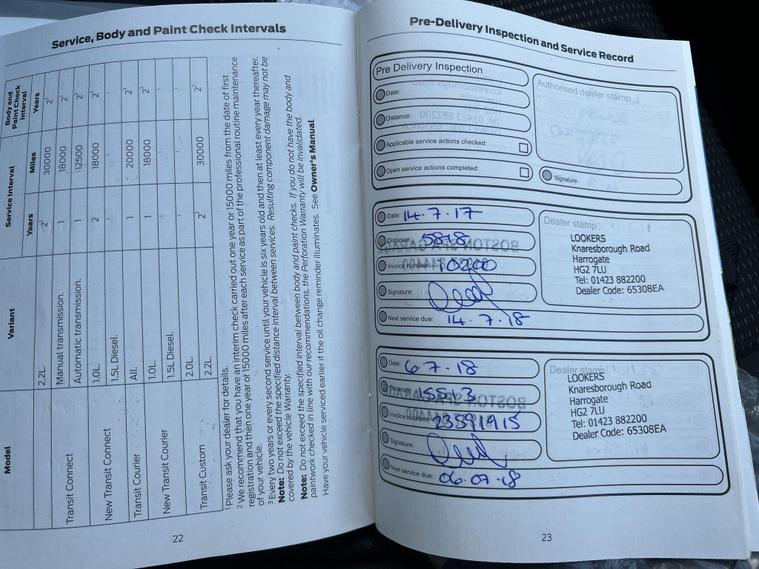 Service, Body and Paint Check Intervals
Model Variant Service Interval Body and Paint Check Interval
Years Miles Years
2.2L. 2² 30000 2¹
Transit Connect
Manual transmission. 1 18000 2¹
Automatic transmission. 1 12500 2¹
New Transit Connect
1.0L. 2 18000 2¹
1.5L Diesel.
Transit Courier
All. 1 20000 2¹
New Transit Courier
1.0L. 1 18000 2¹
1.5L Diesel.
Transit Custom
2.0L.
2.2L. 2² 30000 2¹
¹ Please ask your dealer for details.
² We recommend that you have an interim check carried out one year or 15000 miles from the date of first
registration and then one year or 15000 miles after each service as part of the professional routine maintenance
of your vehicle.
³ Every two years or every second service until your vehicle is six years old and then at least every year thereafter.
Note: Do not exceed the specified distance interval between services. Resulting component damage may not be
covered by the vehicle Warranty.
Note: Do not exceed the specified interval between body and paint checks. If you do not have the body and
paintwork checked in line with our recommendations, the Perforation Warranty will be invalidated.
Have your vehicle serviced earlier if the oil change reminder illuminates. See Owner's Manual.
22
Pre-Delivery Inspection and Service Record
Pre Delivery Inspection
Date:
Distance:
Applicable service actions checked:
Open service actions completed:
Authorised dealer stamp
Signature:
Date: 14.7.17
Distance: 5818
Invoice number: 10200
Signature:
Next service due: 14.7.18
Dealer stamp
LOOKERS
Knaresborough Road
Harrogate
HG2 7LU
Tel: 01423 882200
Dealer Code: 65308EA
Date: 6.7.18
Distance: 15513
Invoice number: 23591915
Signature:
Next service due: 06.07.18
Dealer stamp
LOOKERS
Knaresborough Road
Harrogate
HG2 7LU
Tel: 01423 882200
Dealer Code: 65308EA
23